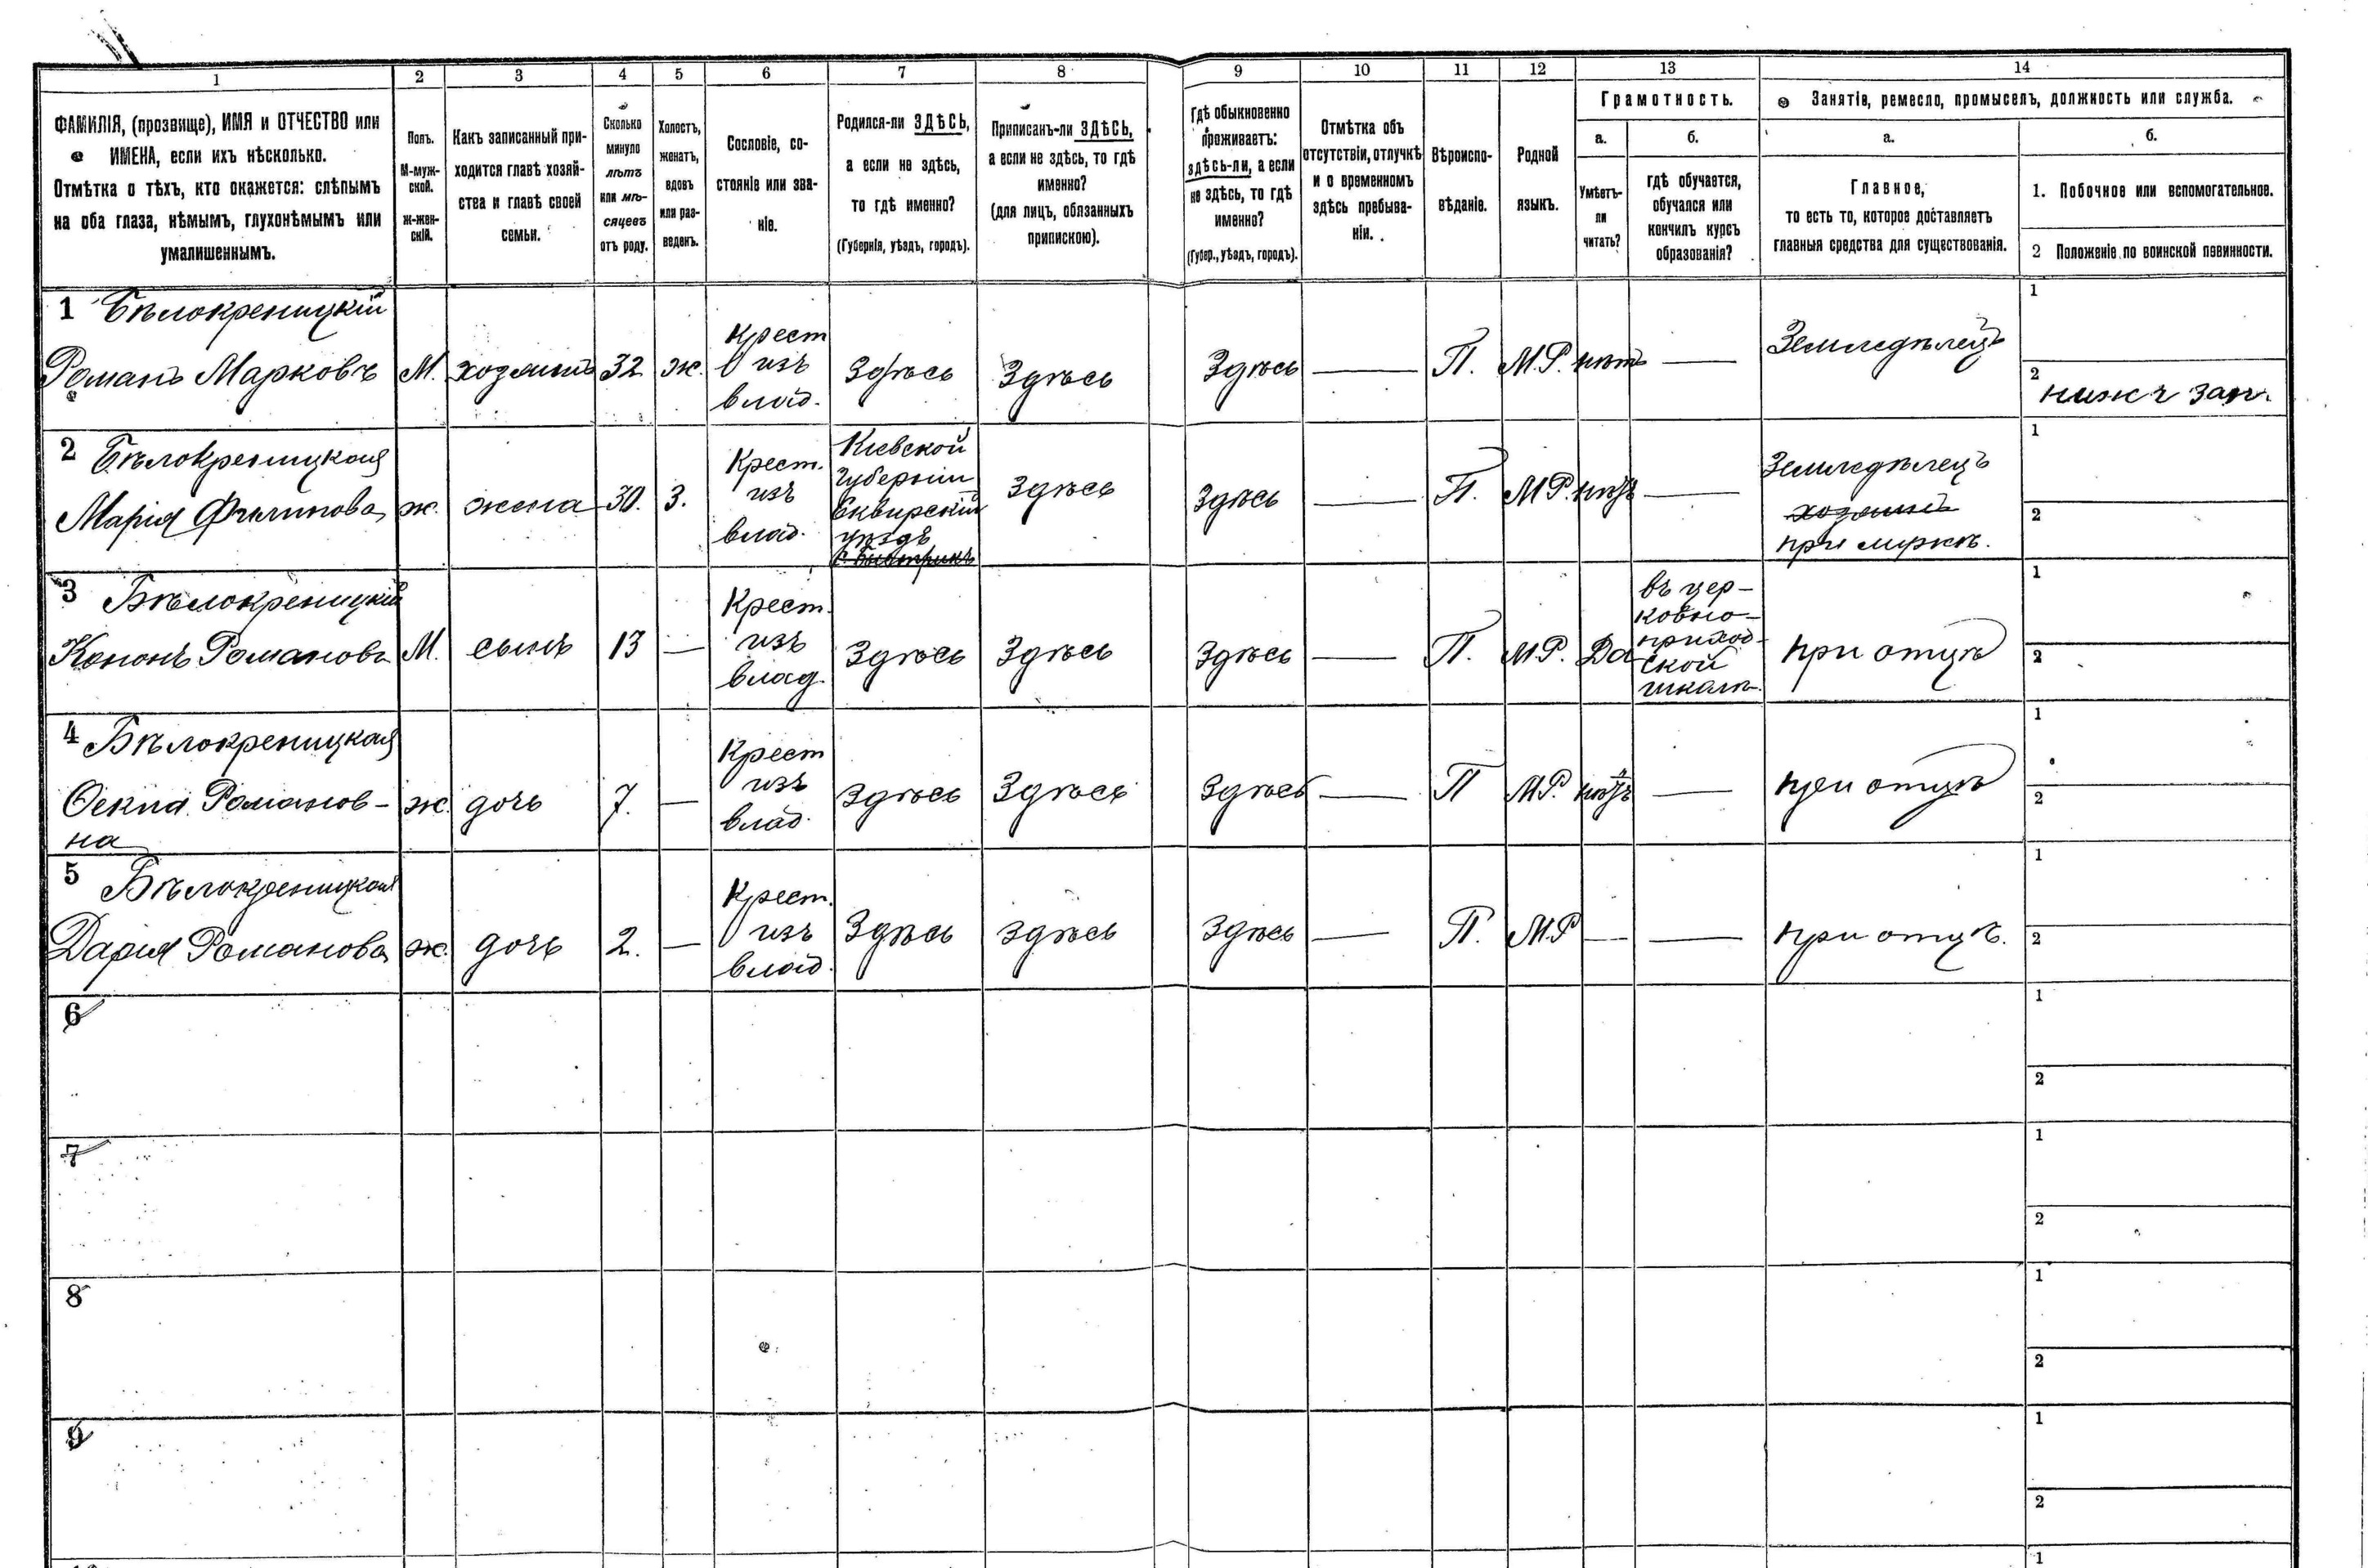 1 2 3 4 5 6 7 8 9 10 11 12 13 14
ФАМИЛІЯ, (прозвище), ИМЯ и ОТЧЕСТВО или
ИМЕНА, если ихъ нѣсколько.
Отмѣтка о тѣхъ, кто окажется: слѣпымъ
на оба глаза, нѣмымъ, глухонѣмымъ или
умалишеннымъ.
Полъ.
М-муж-
ской.
ж-жен-
скій.
Какъ записанный при-
ходится главѣ хозяй-
ства и главѣ своей
семьи.
Сколько
минуло
лѣтъ
или мѣ-
сяцевъ
отъ роду.
Холостъ,
женатъ,
вдовъ
или раз-
веденъ.
Сословіе, со-
стояніе или зва-
ніе.
Родился-ли ЗДѢСЬ,
а если не здѣсь,
то гдѣ именно?
(Губернія, уѣздъ, городъ).
Приписанъ-ли ЗДѢСЬ,
а если не здѣсь, то гдѣ
именно?
(для лицъ, обязанныхъ
припискою).
Гдѣ обыкновенно
проживаетъ:
здѣсь-ли, а если
не здѣсь, то гдѣ
именно?
(Губер., уѣздъ, городъ).
Отмѣтка объ
отсутствіи, отлучкѣ
и о временномъ
здѣсь пребыва-
ніи.
Вѣроиспо-
вѣданіе.
Родной
языкъ.
Грамотность.
а.
Умѣетъ-
ли
читать?
б.
гдѣ обучается,
обучался или
кончилъ курсъ
образованія?
Занятіе, ремесло, промыселъ, должность или служба.
а.
Главное,
то есть то, которое доставляетъ
главныя средства для существованія.
б.
1. Побочное или вспомогательное.
2 Положеніе по воинской повинности.
1 Бѣлокреницкій
Романъ Марковъ
М.
хозяинъ
32
ж.
Крест
изъ
влад.
Здѣсь
Здѣсь
Здѣсь
—
П.
М.Р.
нѣтъ
—
Земледѣлецъ
1
2
нижч зап.
2 Бѣлокреницкая
Марія Филипова
ж.
жена
30.
З.
Крест.
изъ
влад.
Кіевской
губерніи
Сквирскій
уѣздъ
с. Быстрикъ
Здѣсь
Здѣсь
—
П.
М.Р.
нѣтъ
—
Земледѣлецъ
хозяинъ
при мужѣ.
1
2
3 Бѣлокреницкій
Кононъ Романовъ
М.
сынъ
13
—
Крест.
изъ
влад.
Здѣсь
Здѣсь
Здѣсь
—
П.
М.Р.
Да
въ цер-
ковно-
приход-
ской
школѣ.
при отцѣ
1
2
4 Бѣлокреницкая
Романов-
на
ж.
дочь
7.
—
Крест
изъ
влад.
Здѣсь
Здѣсь
Здѣсь
—
П
М.Р.
нѣтъ
—
при отцѣ
1
2
5 Бѣлокреницкая
Дарія Романова
ж.
дочь
2.
—
Крест.
изъ
влад.
Здѣсь
Здѣсь
Здѣсь
—
П.
М.Р
—
—
при отцѣ.
1
2
6
1
2
7
1
2
8
1
2
9
1
2
1